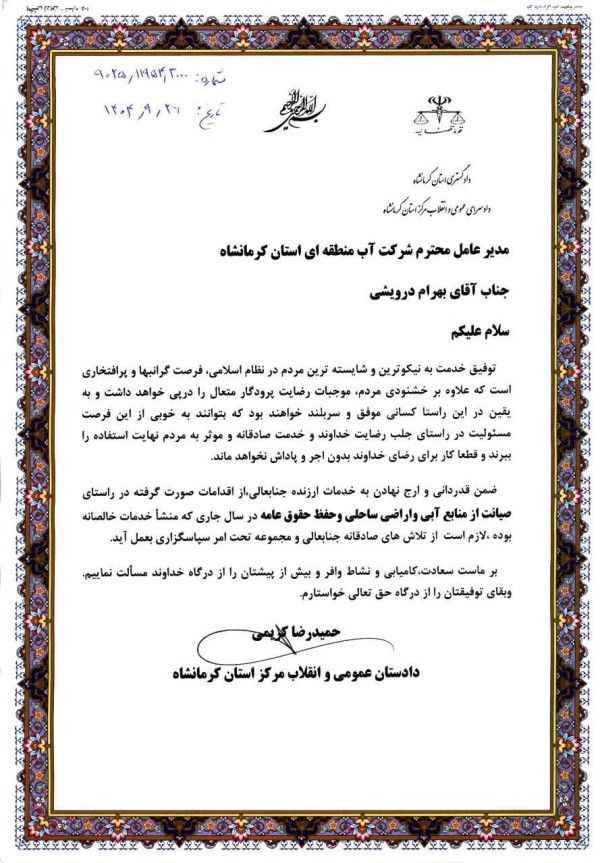 شماره: ۹۰۲۵/۱۱۹۵۴/۳۰۰۰
تاریخ: ۱۴۰۴/۹/۲۶
بسم الله الرحمن الرحیم
قوه قضاییه
دادگستری استان کرمانشاه
دادسرای عمومی و انقلاب مرکز استان کرمانشاه
مدیر عامل محترم شرکت آب منطقه ای استان کرمانشاه
جناب آقای بهرام درویشی
سلام علیکم
توفیق خدمت به نیکوترین و شایسته ترین مردم در نظام اسلامی، فرصت گرانبها و پرافتخاری
است که علاوه بر خشنودی مردم، موجبات رضایت پرودگار متعال را درپی خواهد داشت و به
یقین در این راستا کسانی موفق و سربلند خواهند بود که بتوانند به خوبی از این فرصت
مسئولیت در راستای جلب رضایت خداوند و خدمت صادقانه و موثر به مردم نهایت استفاده را
ببرند و قطعا کار برای رضای خداوند بدون اجر و پاداش نخواهد ماند.
ضمن قدردانی و ارج نهادن به خدمات ارزنده جنابعالی،از اقدامات صورت گرفته در راستای
صیانت از منابع آبی واراضی ساحلی وحفظ حقوق عامه در سال جاری که منشأ خدمات خالصانه
بوده ،لازم است از تلاش های صادقانه جنابعالی و مجموعه تحت امر سپاسگزاری بعمل آید.
بر ماست سعادت،کامیابی و نشاط وافر و بیش از پیشتان را از درگاه خداوند مسألت نماییم.
وبقای توفیقتان را از درگاه حق تعالی خواستارم.
حمیدرضا کریمی
دادستان عمومی و انقلاب مرکز استان کرمانشاه